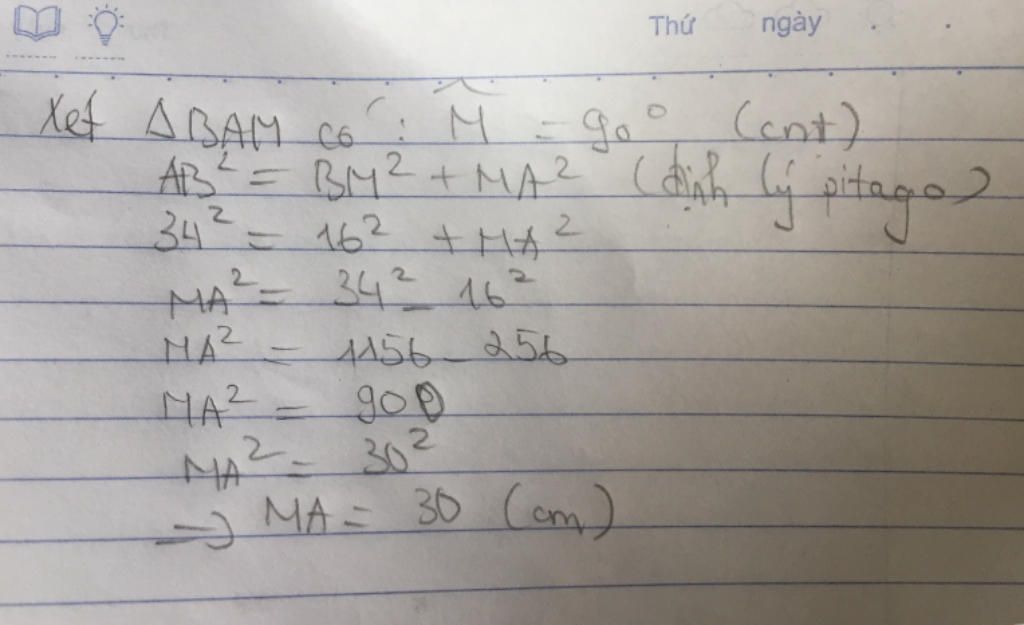 Thứ ngày . .
Xét ΔBAM có : M̂ = 90° (cmt)
AB² = BM² + MA² (định lý pitago)
34² = 16² + MA²
MA² = 34² - 16²
MA² = 1156 - 256
MA² = 900
MA² = 30²
=> MA = 30 (cm)